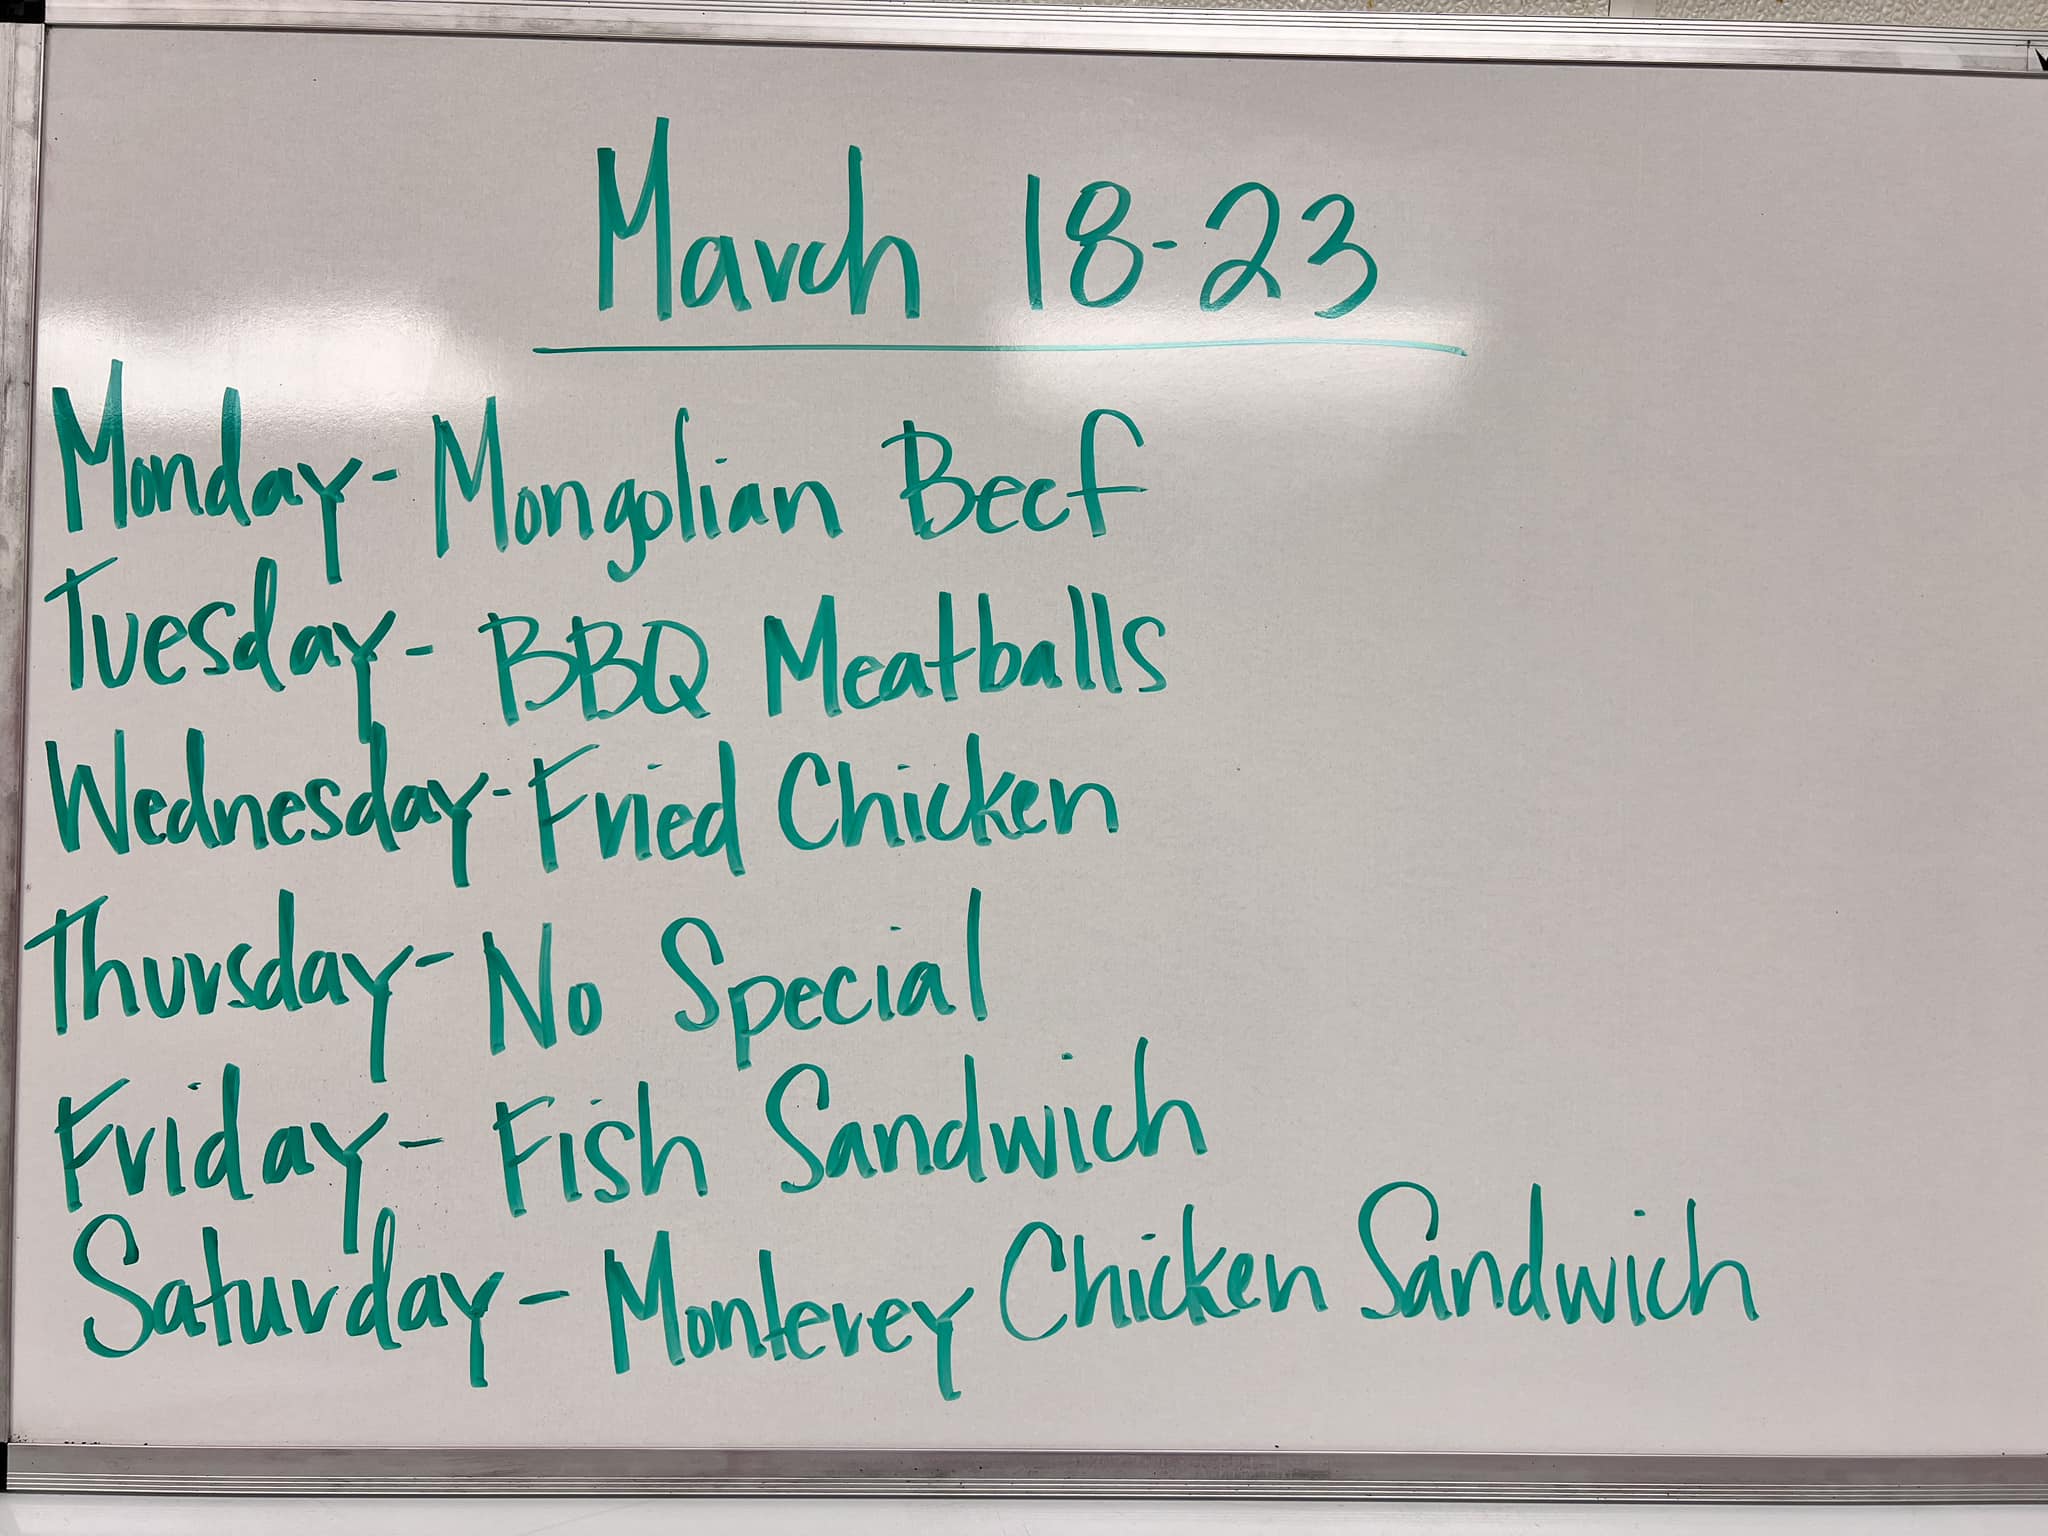 March 18-23
Monday- Mongolian Beef
Tuesday- BBQ Meatballs
Wednesday- Fried Chicken
Thursday- No Special
Friday- Fish Sandwich
Saturday- Monterey Chicken Sandwich